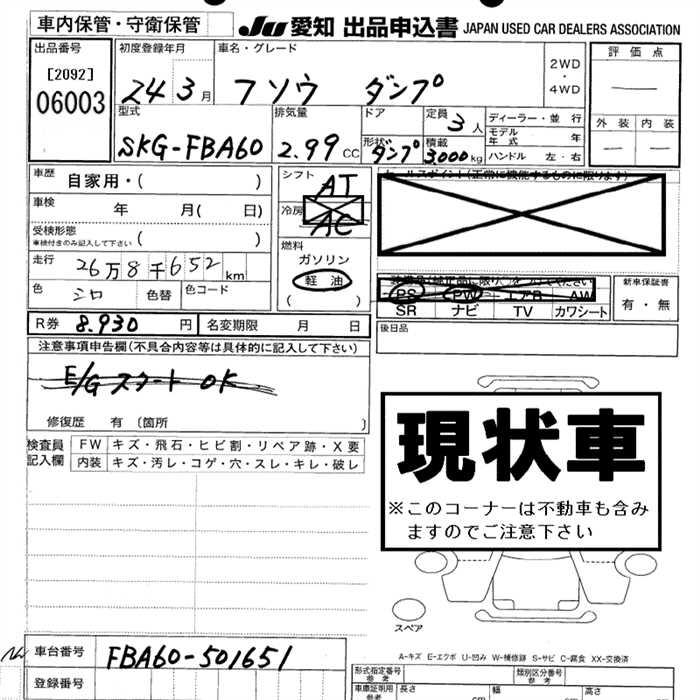 車内保管・守衛保管
JU 愛知 出品申込書 JAPAN USED CAR DEALERS ASSOCIATION
出品番号
[2092]
06003
初度登録年月
24 3月
車名・グレード
フソウ ダンプ
2WD
・
4WD
評価点
型式
SKG-FBA60
排気量
2.99 CC
ドア
形状
ダンプ
定員
3人
積載
3,000kg
ディーラー・並行
モデル年式 年
ハンドル 左・右
外装 内装
車歴
自家用・( )
車検
年 月( 日)
受検形態
車検付きのみ記入して下さい ( )
走行
26万8千652km
色
シロ
色替
色コード
シフト
AT
冷房
AC
燃料
ガソリン
軽油
( )
セールスポイント(正常に機能するものに限ります)
PS PW エアB AW
SR ナビ TV カワシート
新車保証書
有・無
後日品
R券 8.930円
名変期限 月 日
注意事項申告欄(不具合内容等は具体的に記入して下さい)
E/Gスタート OK
修復歴 有〔箇所 〕
検査員記入欄
FW キズ・飛石・ヒビ割・リペア跡・X要
内装 キズ・汚レ・コゲ・穴・スレ・キレ・破レ
現状車
※このコーナーは不動車も含み
ますのでご注意下さい
スペア
A-キズ E-エクボ U-凹み W-補修跡 S-サビ C-腐食 XX-交換済
車台番号
FBA60-501651
登録番号
形式指定番号
類別区分番号
車庫証明用
長さ
幅
高さ